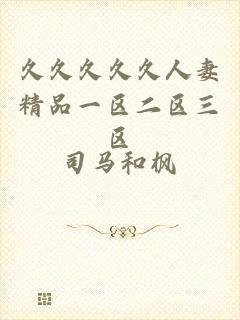 久久久久久人妻
精品一区二区三
区
司马和枫